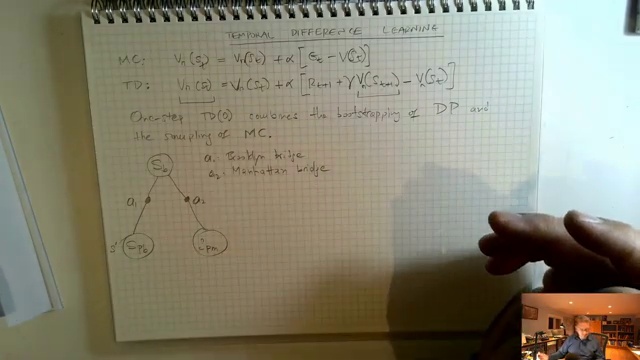 TEMPORAL DIFFERENCE LEARNING
MC: Vπ(St) = Vπ(St) + α [Gt − V(St)]
TD: Vπ(St) = Vπ(St) + α [Rt+1 + γVπ(St+1) − Vπ(St)]
One-step TD(0) combines the bootstrapping of DP and
the sampling of MC.
Sb
a1: Brooklyn bridge
a2: Manhattan bridge
a1 a2
s' Spb Spm